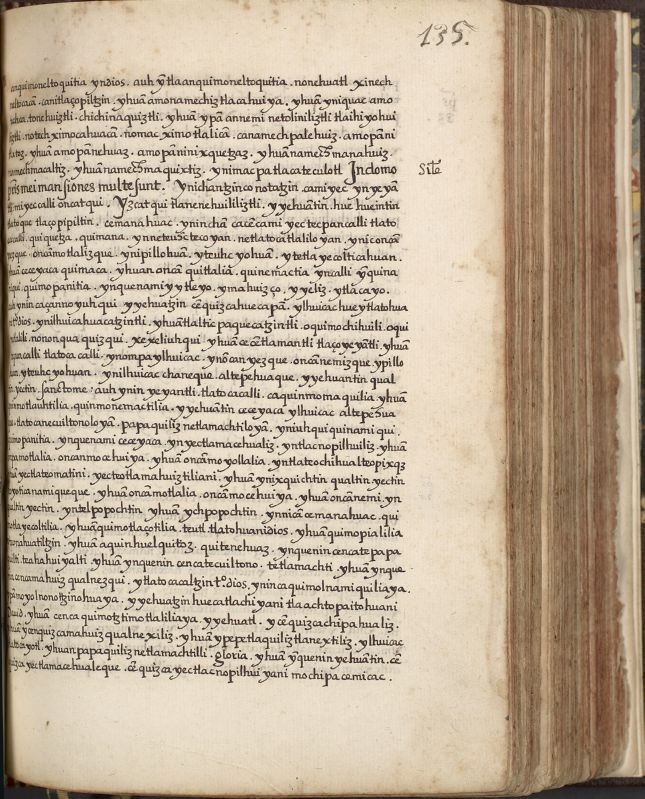 135.
anquimoneltoquitia yndios. auh ỹtlaanquimoneltoquitia. nonehuatl xinech
canitlaçopiltzin. yhuã amonamechiztlacahuiya. yhuã yniquac amo
tonehuiztli. chichinaquiztli. yhuã ypã annemi netoliniliztli tlaihiyohui
liztli. notech ximocahuacã. nomac ximotlalicã. canamechpalehuiz. amopãni
yhuã amopãnehuaz. amopãninixquetzaz. yhuã namech manahuiz
namechmacaltiz. yhuã namech maquixtiz. ynimacpa tlacateculotl In domo
pr̃is mei mansiones multe sunt. Ynichantzinco notatzin. camiyec ynyeyã
miyec calli oncatqui. Yzcatqui tlanenehuililiztli. yyehuãtin. hueĩ hueintin
tlatoque tlaçopipiltin. cemanahuac. yninchã cacẽcami yectecpancalli tlato
quiquetza. quimana. ynneteuhctecoyan. netlatocatlaliloyan. yniconcã
yezque. oncãmotlalizque. ynipillohuã. yteuhcyohuã. ytetlayecolticahuan.
yhuã ceceyaca quimaca. yhuan oncã quitlaliã. quinemactia yncalli ỹquina
quimopanitia. ynquenami yytleyo. ymahuizço, yyeliz. ytlacayo.
auh ynin caçanno yuhqui yyehuatzin cẽquizcahuecapã. ylhuicac huey tlatohua
ni tt̃o dios. ynilhuicahuacatzintli. yhuã tlalticpaquecatzintli. oquimochihuili. oqui
nononqua quizqui. xexeliuhqui. yhuã cecẽtlamantli tlaçoyeyãtli. yhuã
tecpancalli tlatocacalli. ynompa ylhuicac. ynõcan yezque. oncãnemizque. ypillo
huan. yteuhcyohuan. ynilhuicac chaneque. altepehuaque. yyehuantin qual
tin yectin. sanctome: auh ynin yeyantli. tlatocacalli. caquinmomaquilia. yhuã
quinmotlauhtilia. quinmonemactilia. yyehuãtin ceceyaca ylhuicac altepehua
que. tlatocanecuiltonoloyã. papaquiliz netlamachtiloyã. yniuhqui quinami qui
quimopanitia. ynquenami ceceyaca. yn yectlamacehualiz. yntlacnopilhuiliz. yhuã
oncanmocehuiya. yhuã oncãmo yollalia. yntlateochihualteopixqz
yhuã yectlateomatini. yecteotlamahuiztiliani. yhuã ynixquichtin qualtin yectin
yhuã oncãmotlalia. oncãmocehuiya. yhuã oncãnemi. yn
qualtin yectin. yntelpopochtin yhuã ychpopochtin. ynnicã cemanahuac. qui
motlayecoltilia. yhuã quimotlaçotilia. teutl tlatohuani dios. yhuã quimopialilia
ytenahuatiltzin. yhuã aquin huel quitoz. quitenehuaz. ynquenin cencatepapa
quilti. teahahuiyalti. yhuã ynquenin cencatecuiltono. tetlamachti. yhuã ynque
nin cencamahuiz qualnezqui. ytlatocacaltzin tt̃o dios. ynincaquimolnamiquiliaya.
ypã moyolnonotzinohuaya. yyehuatzin huecatlachiyani tlaachtopaitohuani
David. yhuã cenca quimotztimotlaliliaya. yyehuatl. ycẽquizcachipahualiz.
yhuã ycenquizcamahuizqualnexiliz. yhuã ypepetlaquiliztlanextiliz. ylhuicac
tlatocayotl. yhuan papaquiliz netlamachtilli. gloria. yhuã ỹquenin yehuãtin. cẽ
quizca yectlamacehualeque. cẽquizca yectlacnopilhuiyani mochipa cemicac.